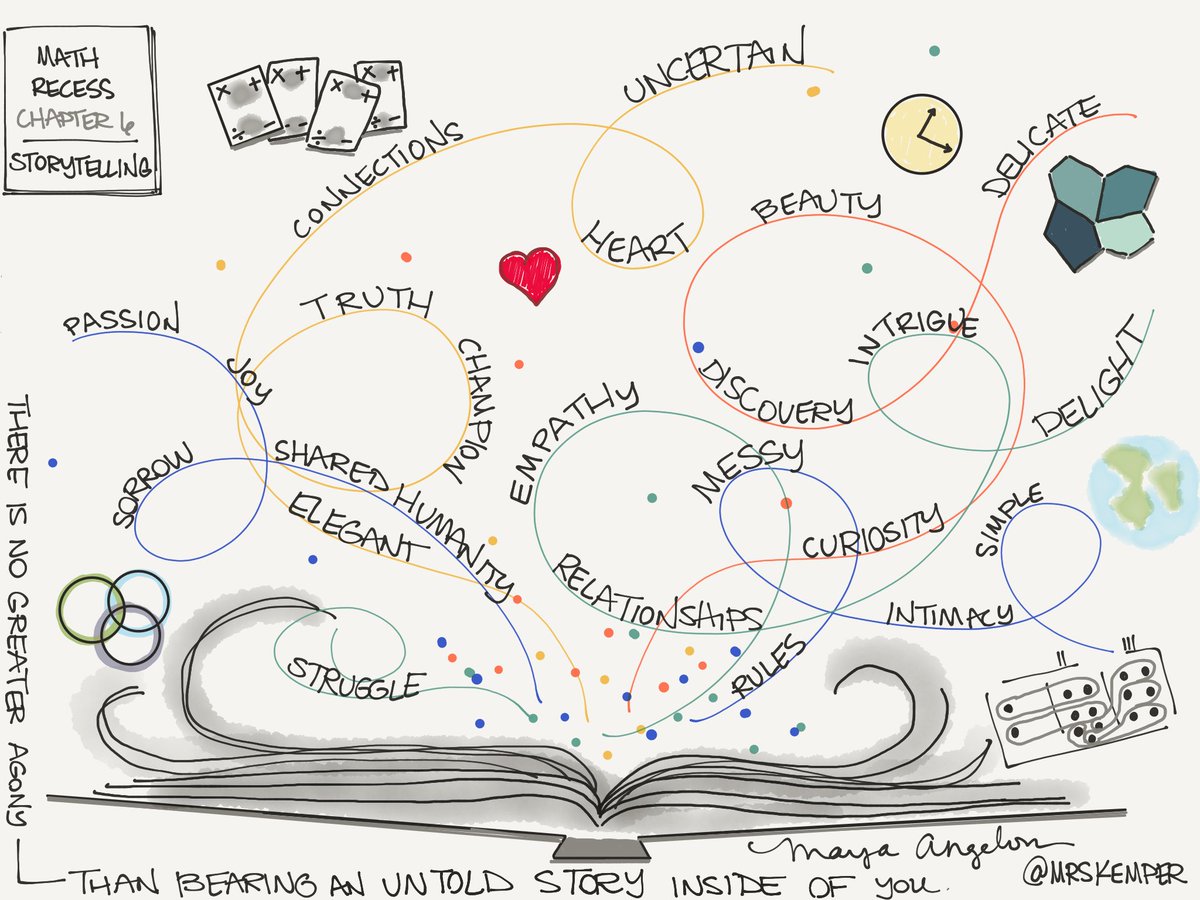 MATH
RECESS
CHAPTER 6
STORYTELLING
x + ÷ -
x + - -
x + ÷ -
x +
UNCERTAIN
CONNECTIONS
HEART
DELICATE
BEAUTY
PASSION
TRUTH
JOY
CHAMPION
INTRIGUE
DISCOVERY
DELIGHT
EMPATHY
MESSY
SORROW
SHARED HUMANITY
ELEGANT
CURIOSITY
SIMPLE
RELATIONSHIPS
INTIMACY
STRUGGLE
RULES
II
III
THERE IS NO GREATER AGONY
THAN BEARING AN UNTOLD STORY INSIDE OF YOU.
Maya Angelou
@MRSKEMPER